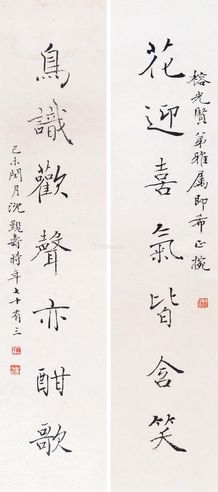 榕光賢弟雅屬即希正挽
花迎喜氣皆含笑
鳥識歡聲亦酣歌
己未閏月沈覲壽時年七十有三